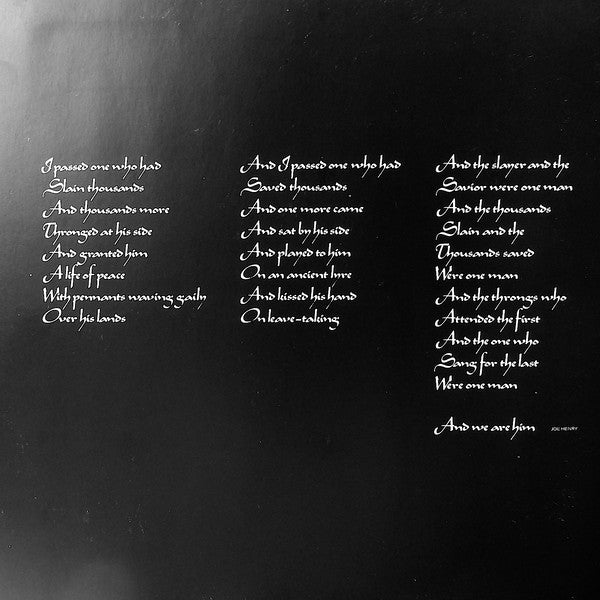 I passed one who had
Slain thousands
And thousands more
Thronged at his side
And granted him
A life of peace
With pennants waving gaily
Over his lands
And I passed one who had
Saved thousands
And one more came
And sat by his side
And played to him
On an ancient lyre
And kissed his hand
On leave-taking
And the slayer and the
Savior were one man
And the thousands
Slain and the
Thousands saved
Were one man
And the throngs who
Attended the first
And the one who
Sang for the last
Were one man
And we are him JOE HENRY